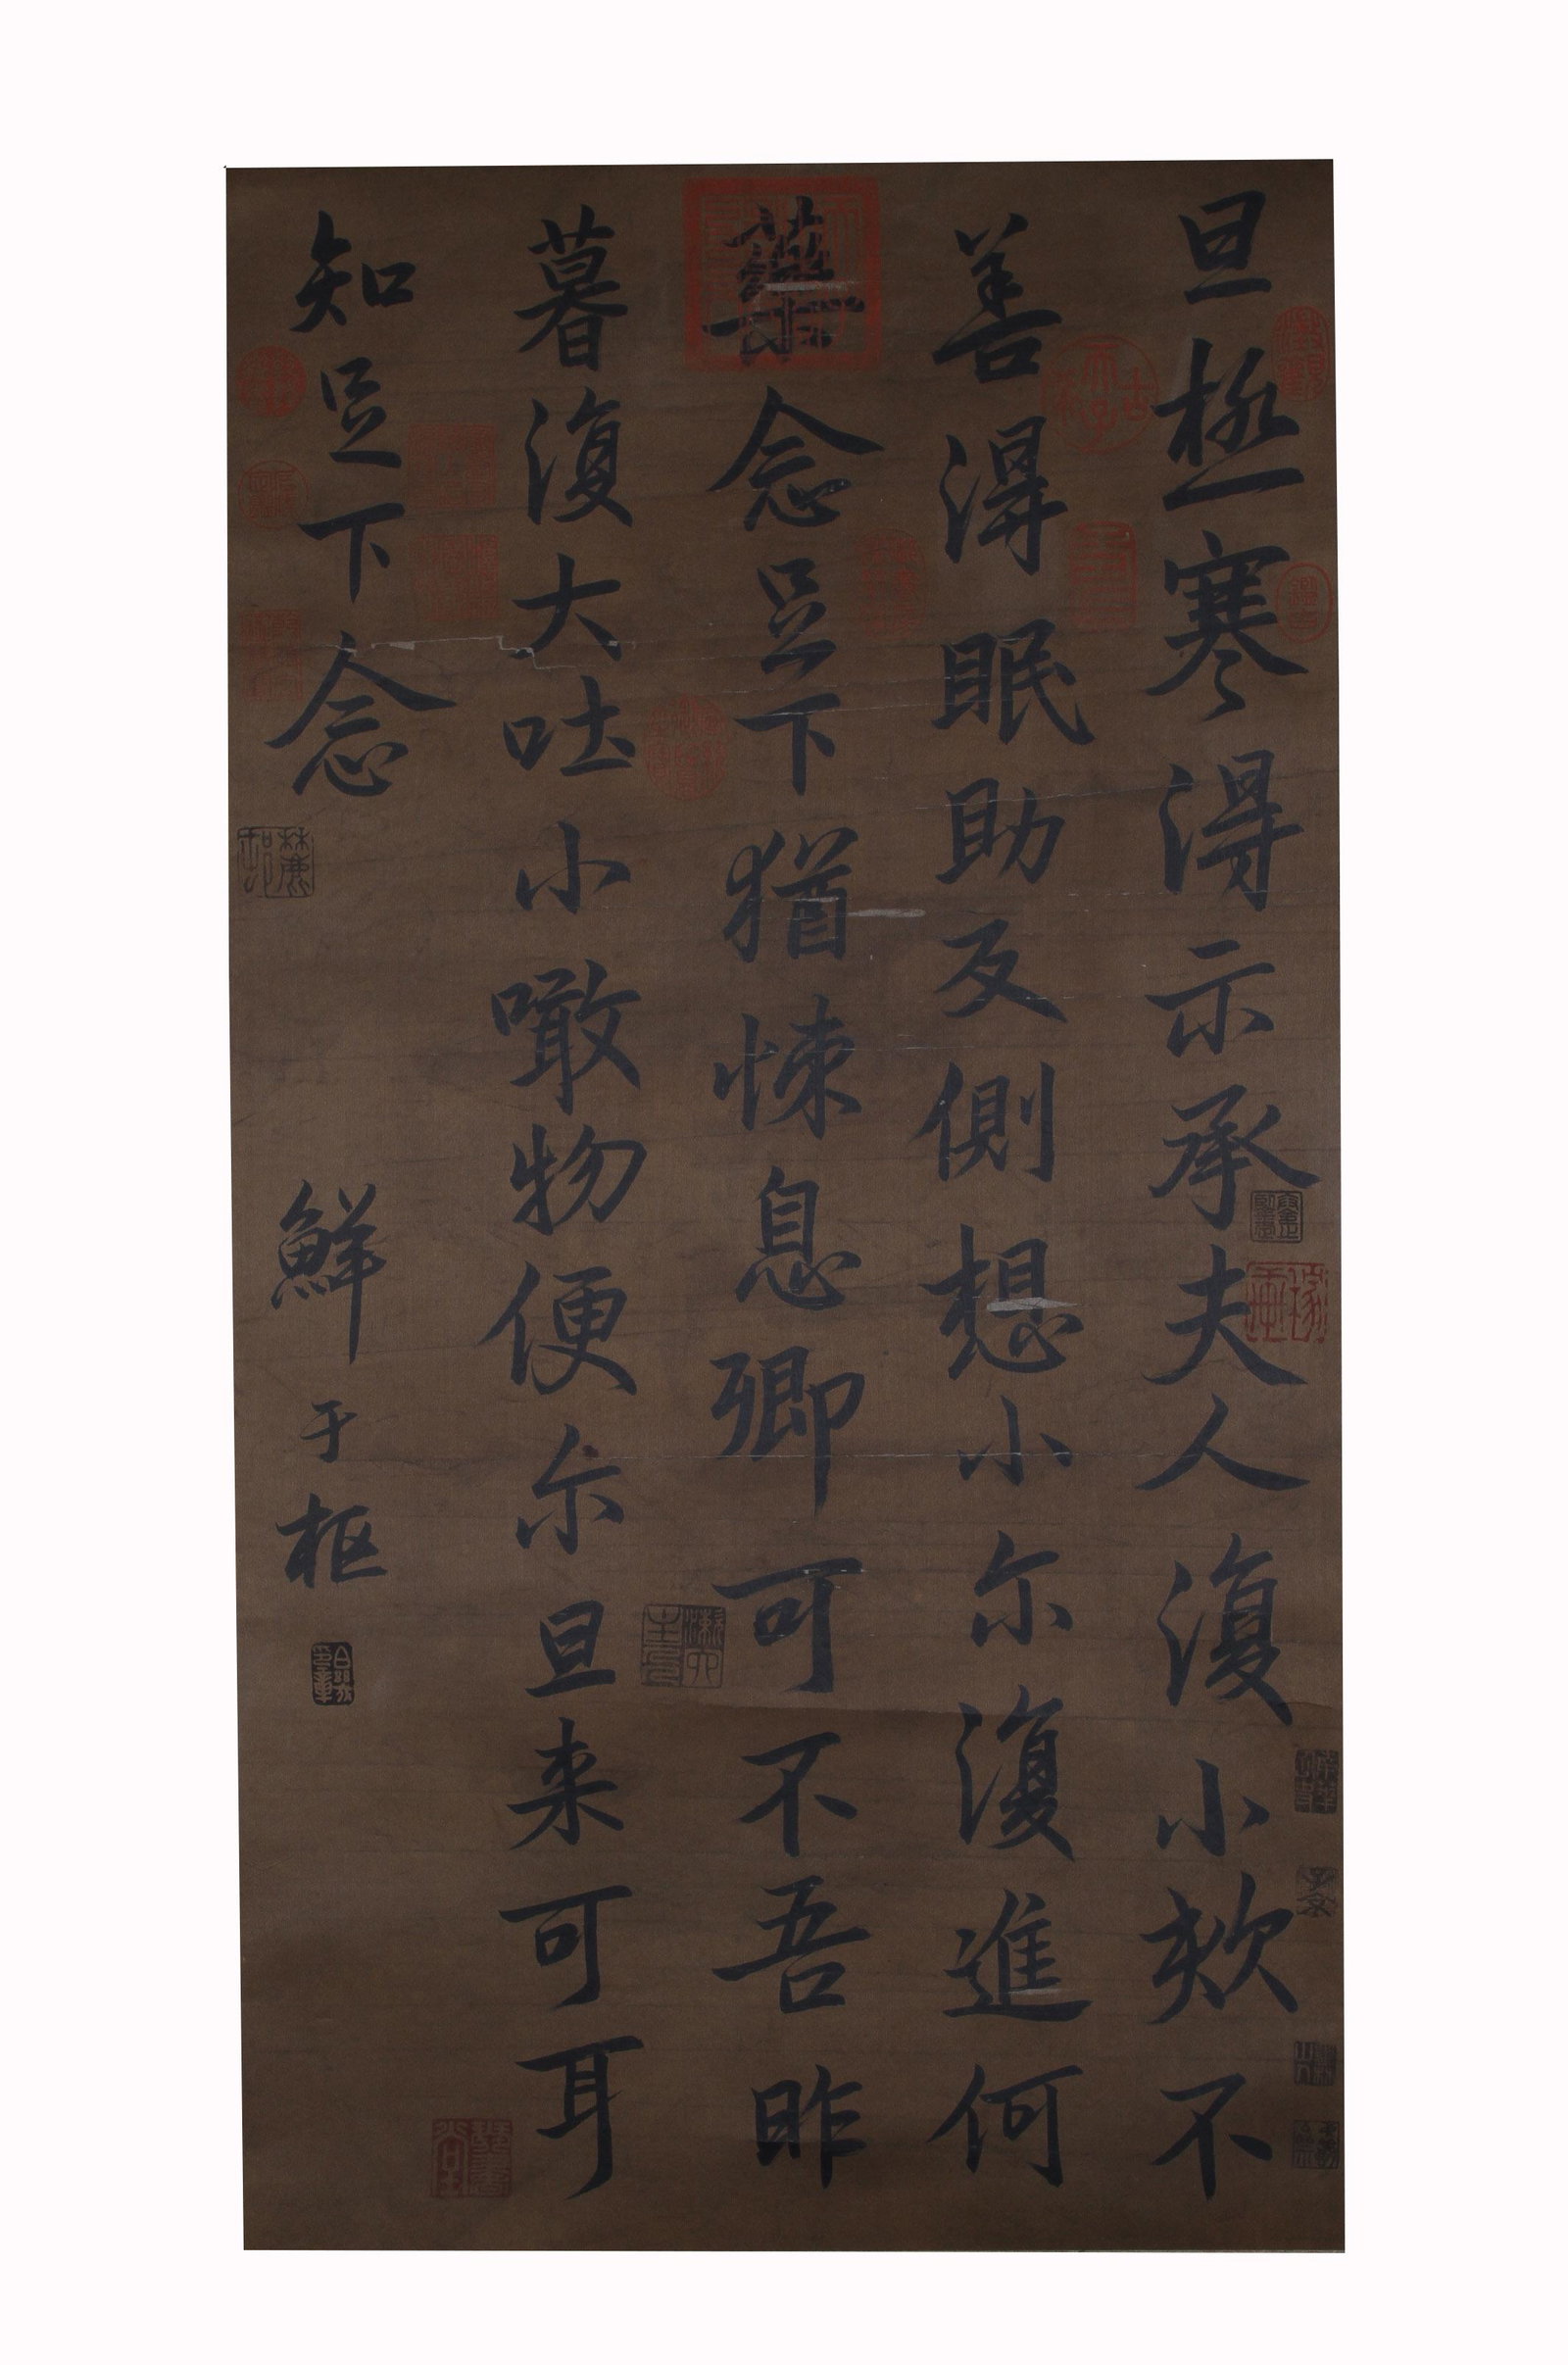 旦極寒得示承夫人復小欬不
善得眠助反側想小尔復進何
藥念足下猶悚息卿可不吾昨
暮復大吐小噉物便尒旦来可耳
知足下念
鮮于枢